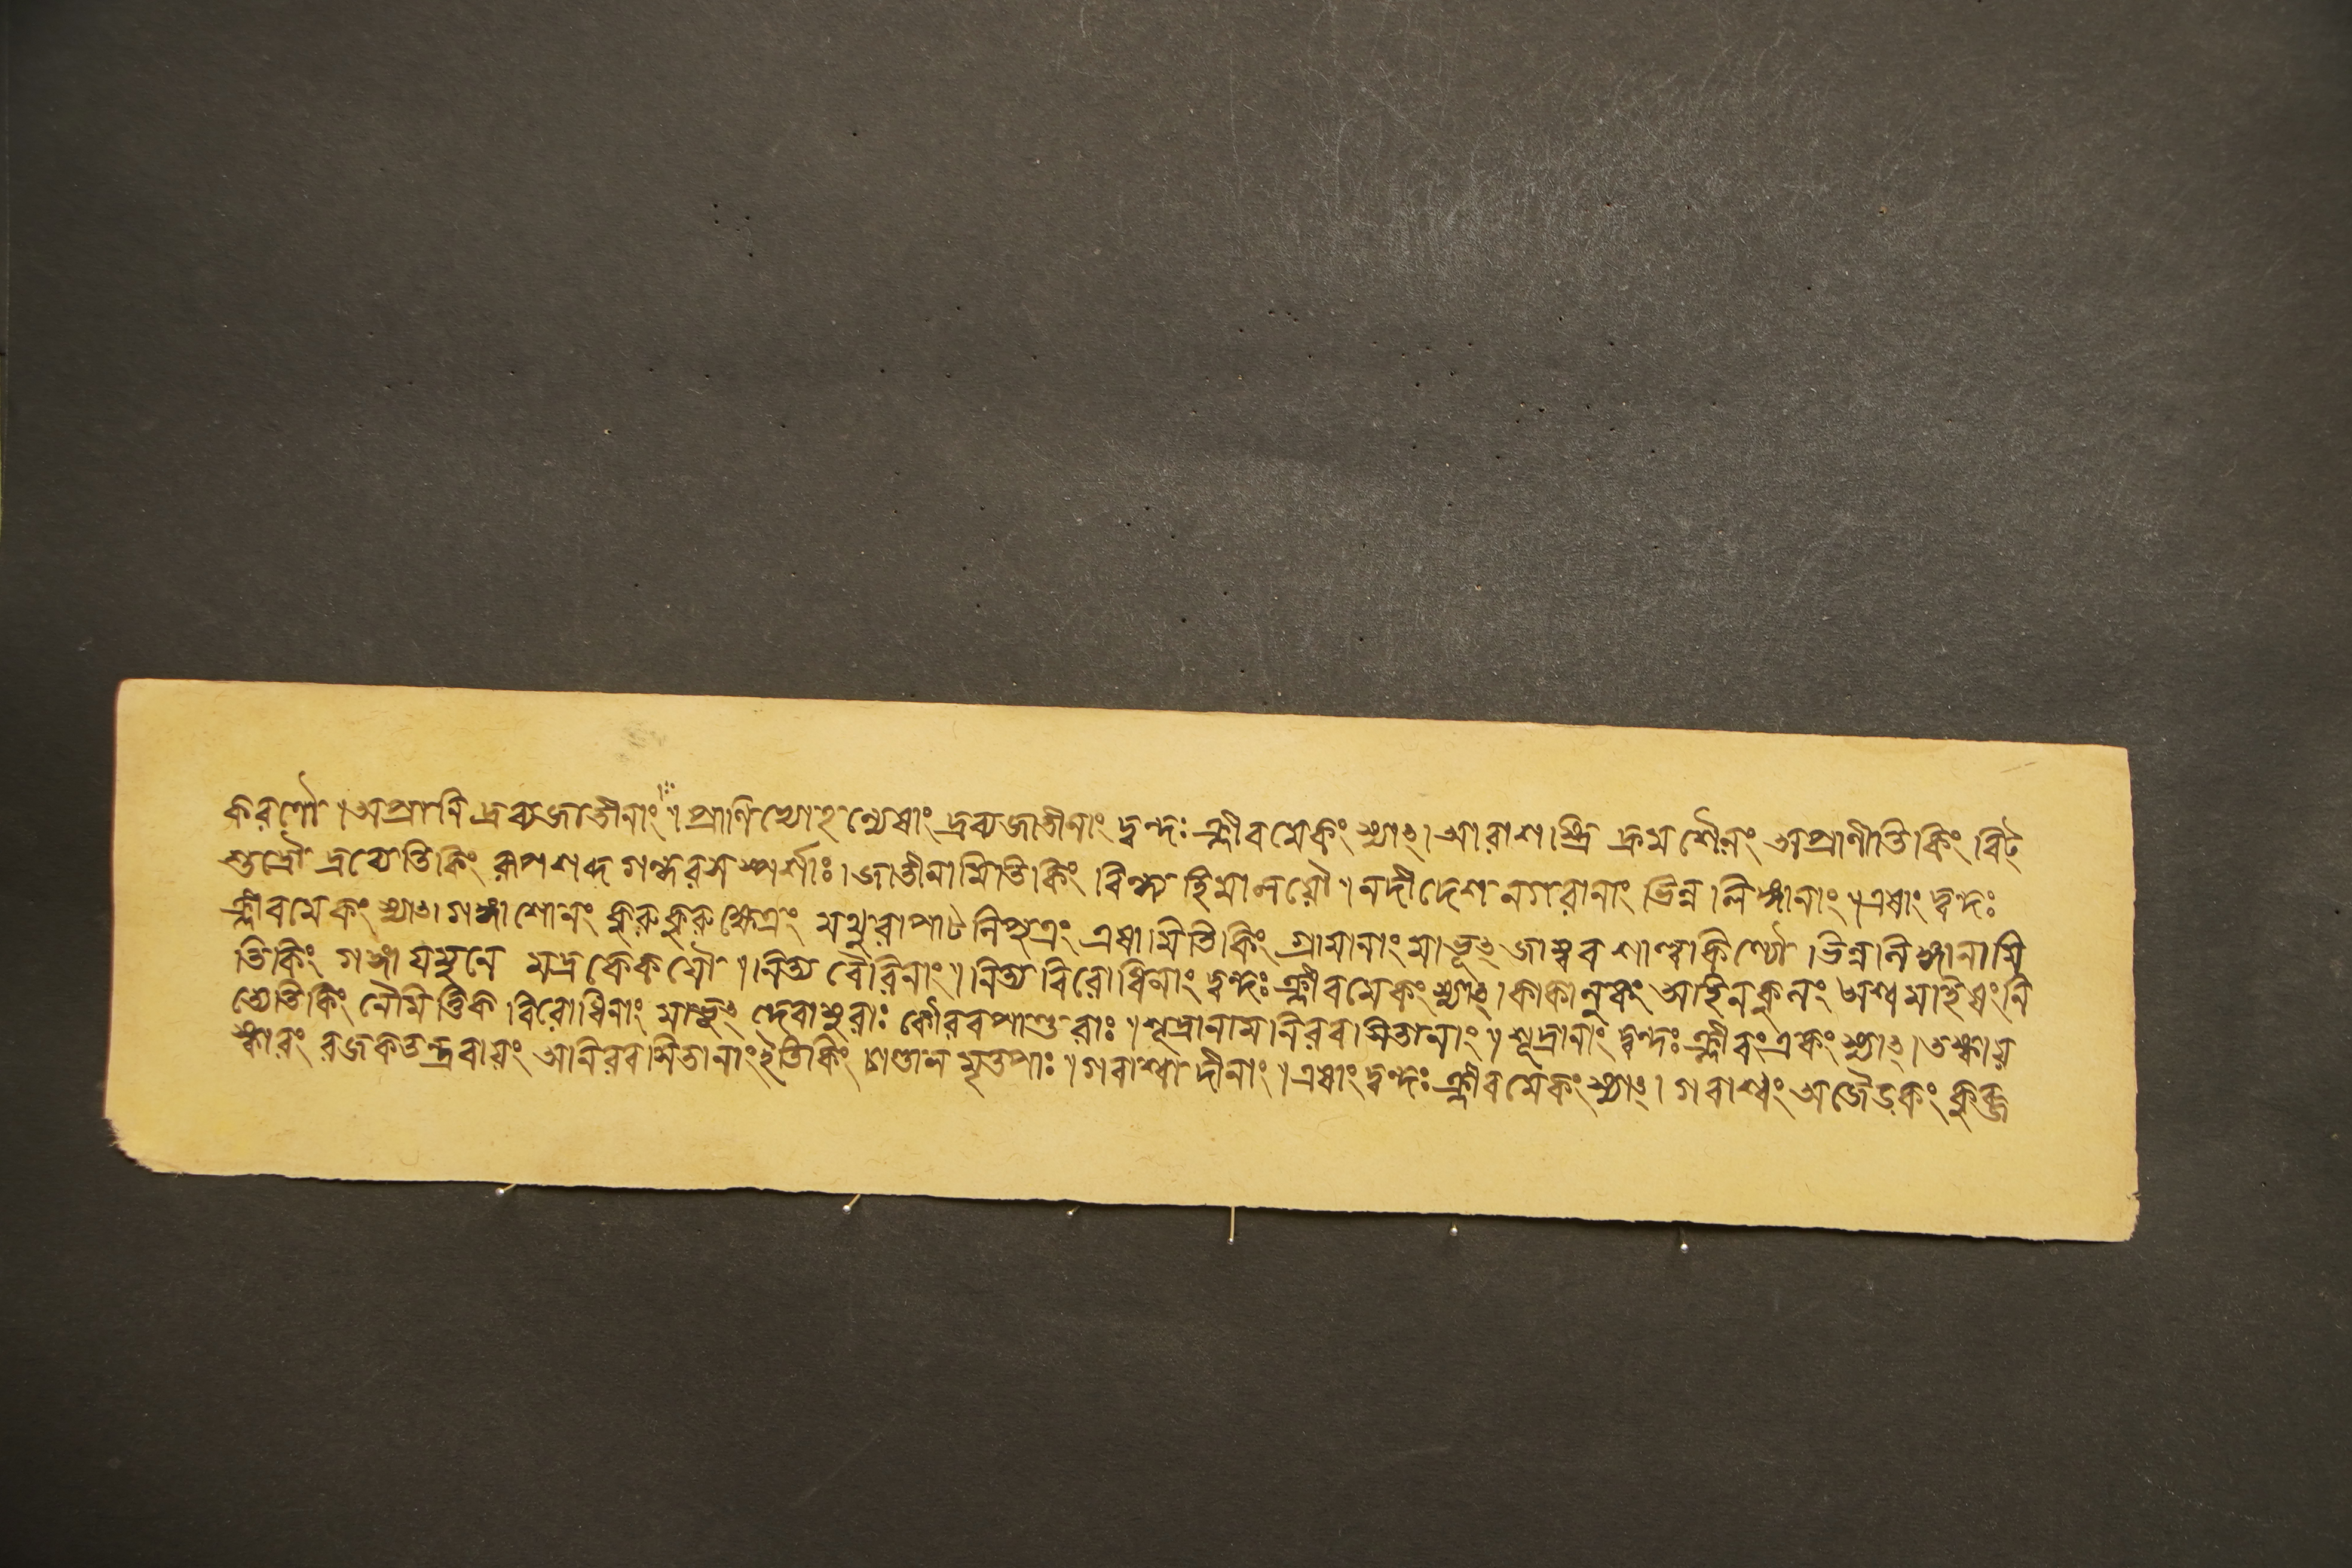 করণৌ ৷ অপ্রানি দ্রব্যজাতীনাং ৷৷ প্রাণিভ্যোহন্যেষাং দ্রব্যজাতীনাং দ্বন্দঃ ক্লীবমেকং স্যাৎ ৷ আরাশস্ত্রি অপ্রাণীতি কিং বিট্
শুদ্রৌ দ্রব্যেতি কিং রূপশব্দগন্ধরসস্পর্শাঃ ৷ জাতীনামিতি কিং বিন্ধ্যহিমালয়ৌ ৷ নদীদেশনগরানাং ভিন্নলিঙ্গানাং ৷৷ এষাং দ্বন্দঃ
ক্লীবমেকং স্যাৎ ৷ গঙ্গাশোনং কুরুকুরুক্ষেত্রং মথুরাপাটলিপুত্রং এষামিতি কিং গ্রামানাং মাভূৎ জাম্বব ভিন্নলিঙ্গানামি
তি কিং গঙ্গাযমুনে মদ্রকেকয়ৌ ৷৷ নিত্যবৈরিনাং ৷৷ নিত্যবিরোধিনাং দ্বন্দঃ ক্লীবমেকং স্যাৎ ৷ কাকোলুকং অহিনকুলং অশ্বমাহিষং নি
ত্যেতি কিং নৈমিত্তিকবিরোধিনাং মাভূৎ দেবাসুরাঃ কৌরবপাণ্ডবাঃ ৷৷ শূদ্রানামনিরবসিতানাং ৷৷ শূদ্রানাং দ্বন্দঃ ক্লীবং একং স্যাৎ ৷ তক্ষায়
স্কারং রজকতন্ত্রবায়ং অনিরবসিতানাং ইতি কিং চণ্ডালমৃতপাঃ ৷৷ গবাশ্বাদীনাং ৷৷ এষাং দ্বন্দঃ ক্লীবমেকং স্যাৎ ৷ গবাশ্বং অজৈড়কং কুব্জ